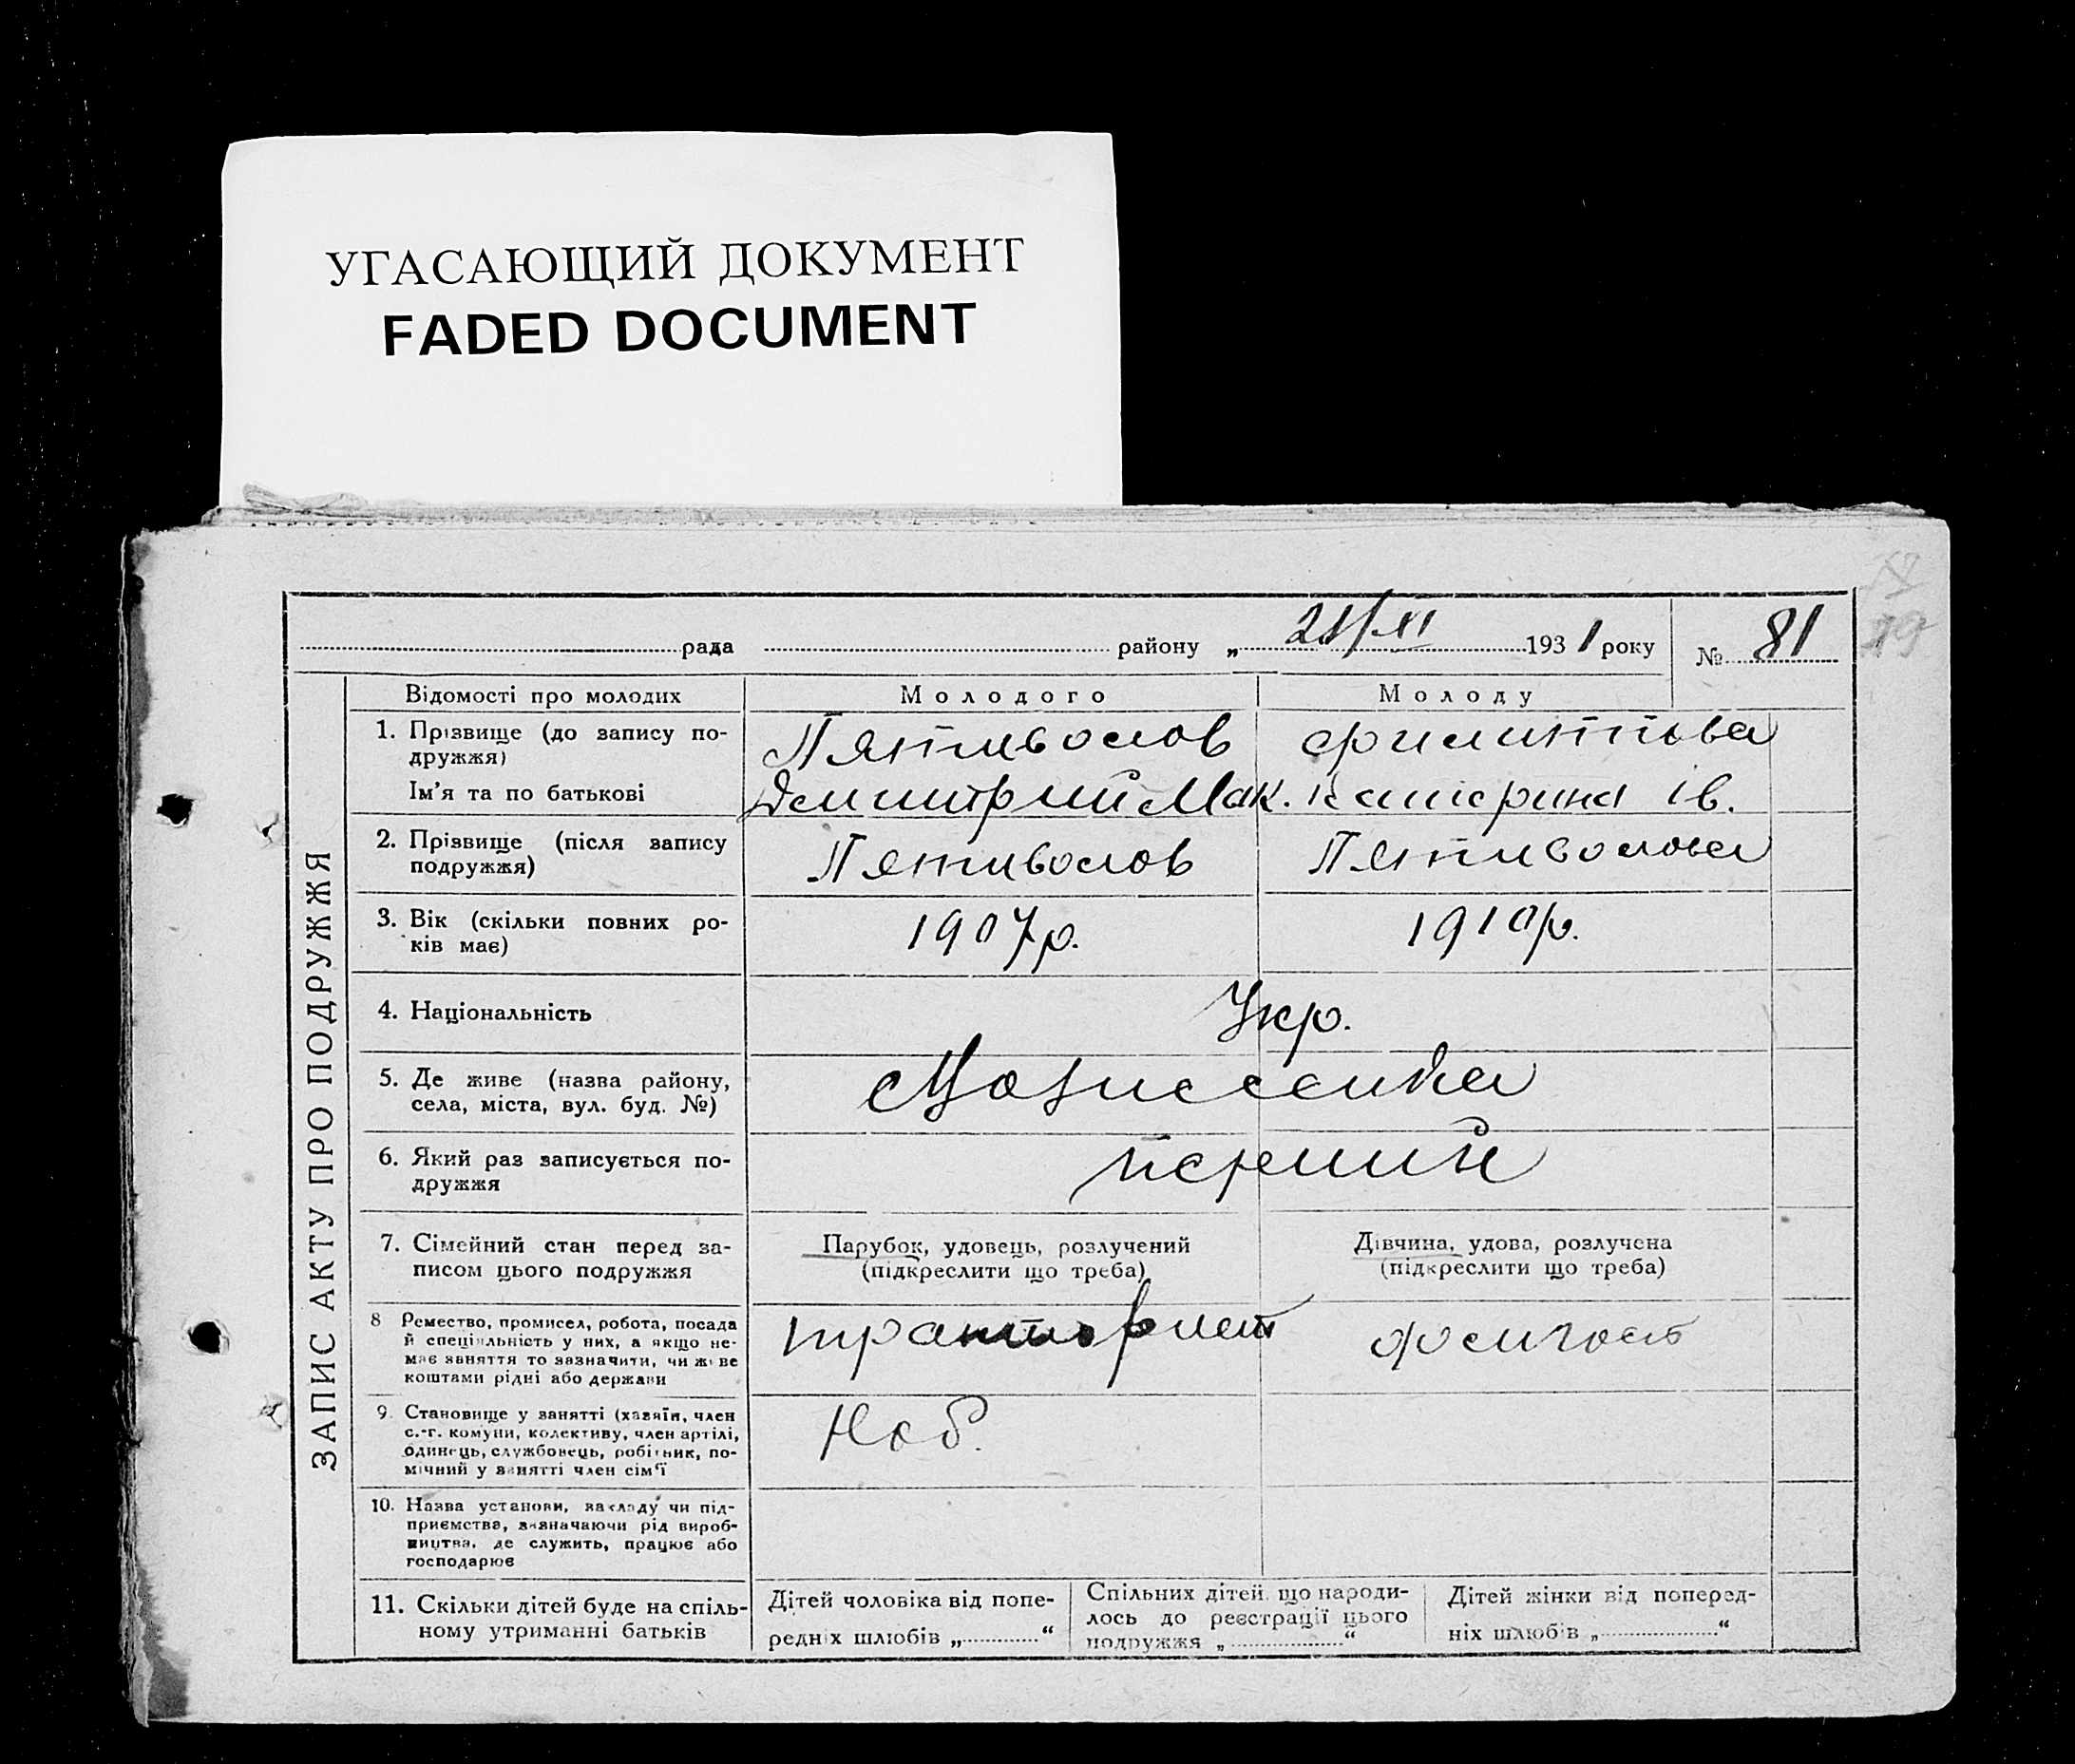 УГАСАЮЩИЙ ДОКУМЕНТ
FADED DOCUMENT
рада району „ 21/XI 1931 року № 81
ЗАПИС АКТУ ПРО ПОДРУЖЖЯ
Відомості про молодих Молодого Молоду
1. Прізвище (до запису по-
дружжя)
Пятиволов Филиппова
Ім'я та по батькові Демитрий Мак. Катерина Ів.
2. Прізвище (після запису
подружжя)
Пятиволов Пятиволова
3. Вік (скільки повних ро-
ків має)
1907р. 1910р.
4. Національність Укр.
5. Де живе (назва району,
села, міста, вул. буд. №)
6. Який раз записується по-
дружжя
перший
7. Сімейний стан перед за-
писом цього подружжя
Парубок, удовець, розлучений
(підкреслити що треба)
Дівчина, удова, розлучена
(підкреслити що треба)
8 Ремество, промисел, робота, посада
й спеціяльність у них, а якщо не-
має заняття то зазначити, чи живе
коштами рідні або держави
тракторист
9. Становище у занятті (хазяїн, член
с.-г. комуни, колективу, член артілі,
одинець, службовець, робітник, по-
мічний у занятті член сім'ї
10. Назва установи, закладу чи під-
приємства, зазначаючи рід вироб-
ництва, де служить, працює або
господарює
11. Скільки дітей буде на спіль-
ному утриманні батьків
Дітей чоловіка від попе-
редніх шлюбів „ “
Спільних дітей, що народи-
лось до реєстрації цього
подружжя „ “
Дітей жінки від поперед-
ніх шлюбів „ “